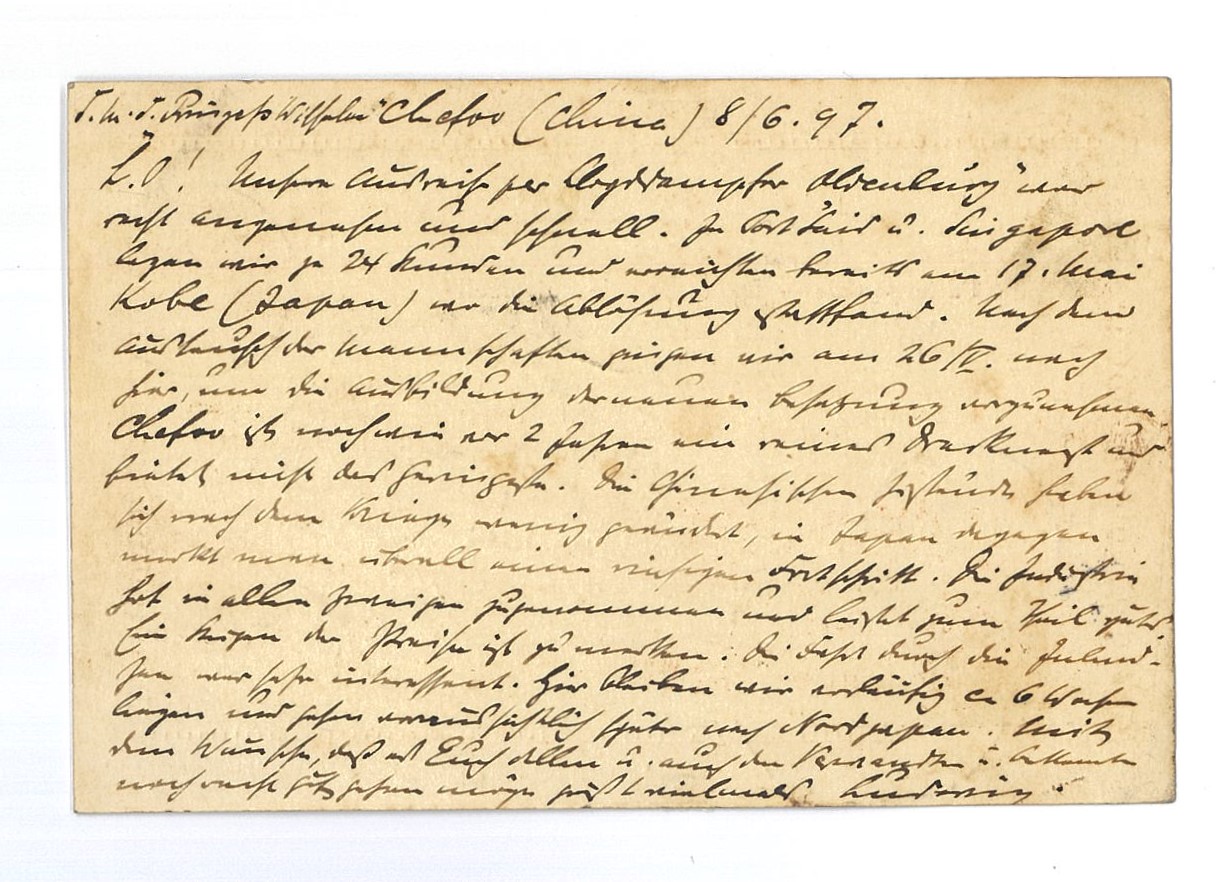 S. M. S. Prinzeß "Wilhelm" Chefoo (China) 8/6. 97.
L. O! Unsere Ausreise per Lloyddampfer "Oldenburg" war
recht angenehm und schnell. In Port Said u. Singapore
lagen wir je 24 Stunden und erreichten bereits am 17. Mai
Kobe (Japan) wo die Ablösung stattfand. Nach dem
Austausch der Mannschaften gingen wir am 26/V. nach
hier, um die Ausbildung der neuen Besatzung vorzunehmen.
Chefoo ist noch wie vor 2 Jahren ein reines Drecknest und
bietet nicht das Geringste. Die Chinesischen Zustände haben
sich nach dem Kriege wenig geändert, in Japan dagegen
merkt man überall einen riesigen Fortschritt. Die Industrie
hat in allen Zweigen zugenommen und leistet zum Theil gutes.
Ein Steigen der Preise ist zu merken. Die Fahrt durch die Inland-
see war sehr interessant. Hier bleiben wir vorläufig ca 6 Wochen
liegen und gehen voraussichtlich später nach Nordjapan. Mit
dem Wunsche, daß es Euch allen u. auch den Verwandten u. Bekannten
noch recht gut gehen möge grüßt vielmals Ludwig.